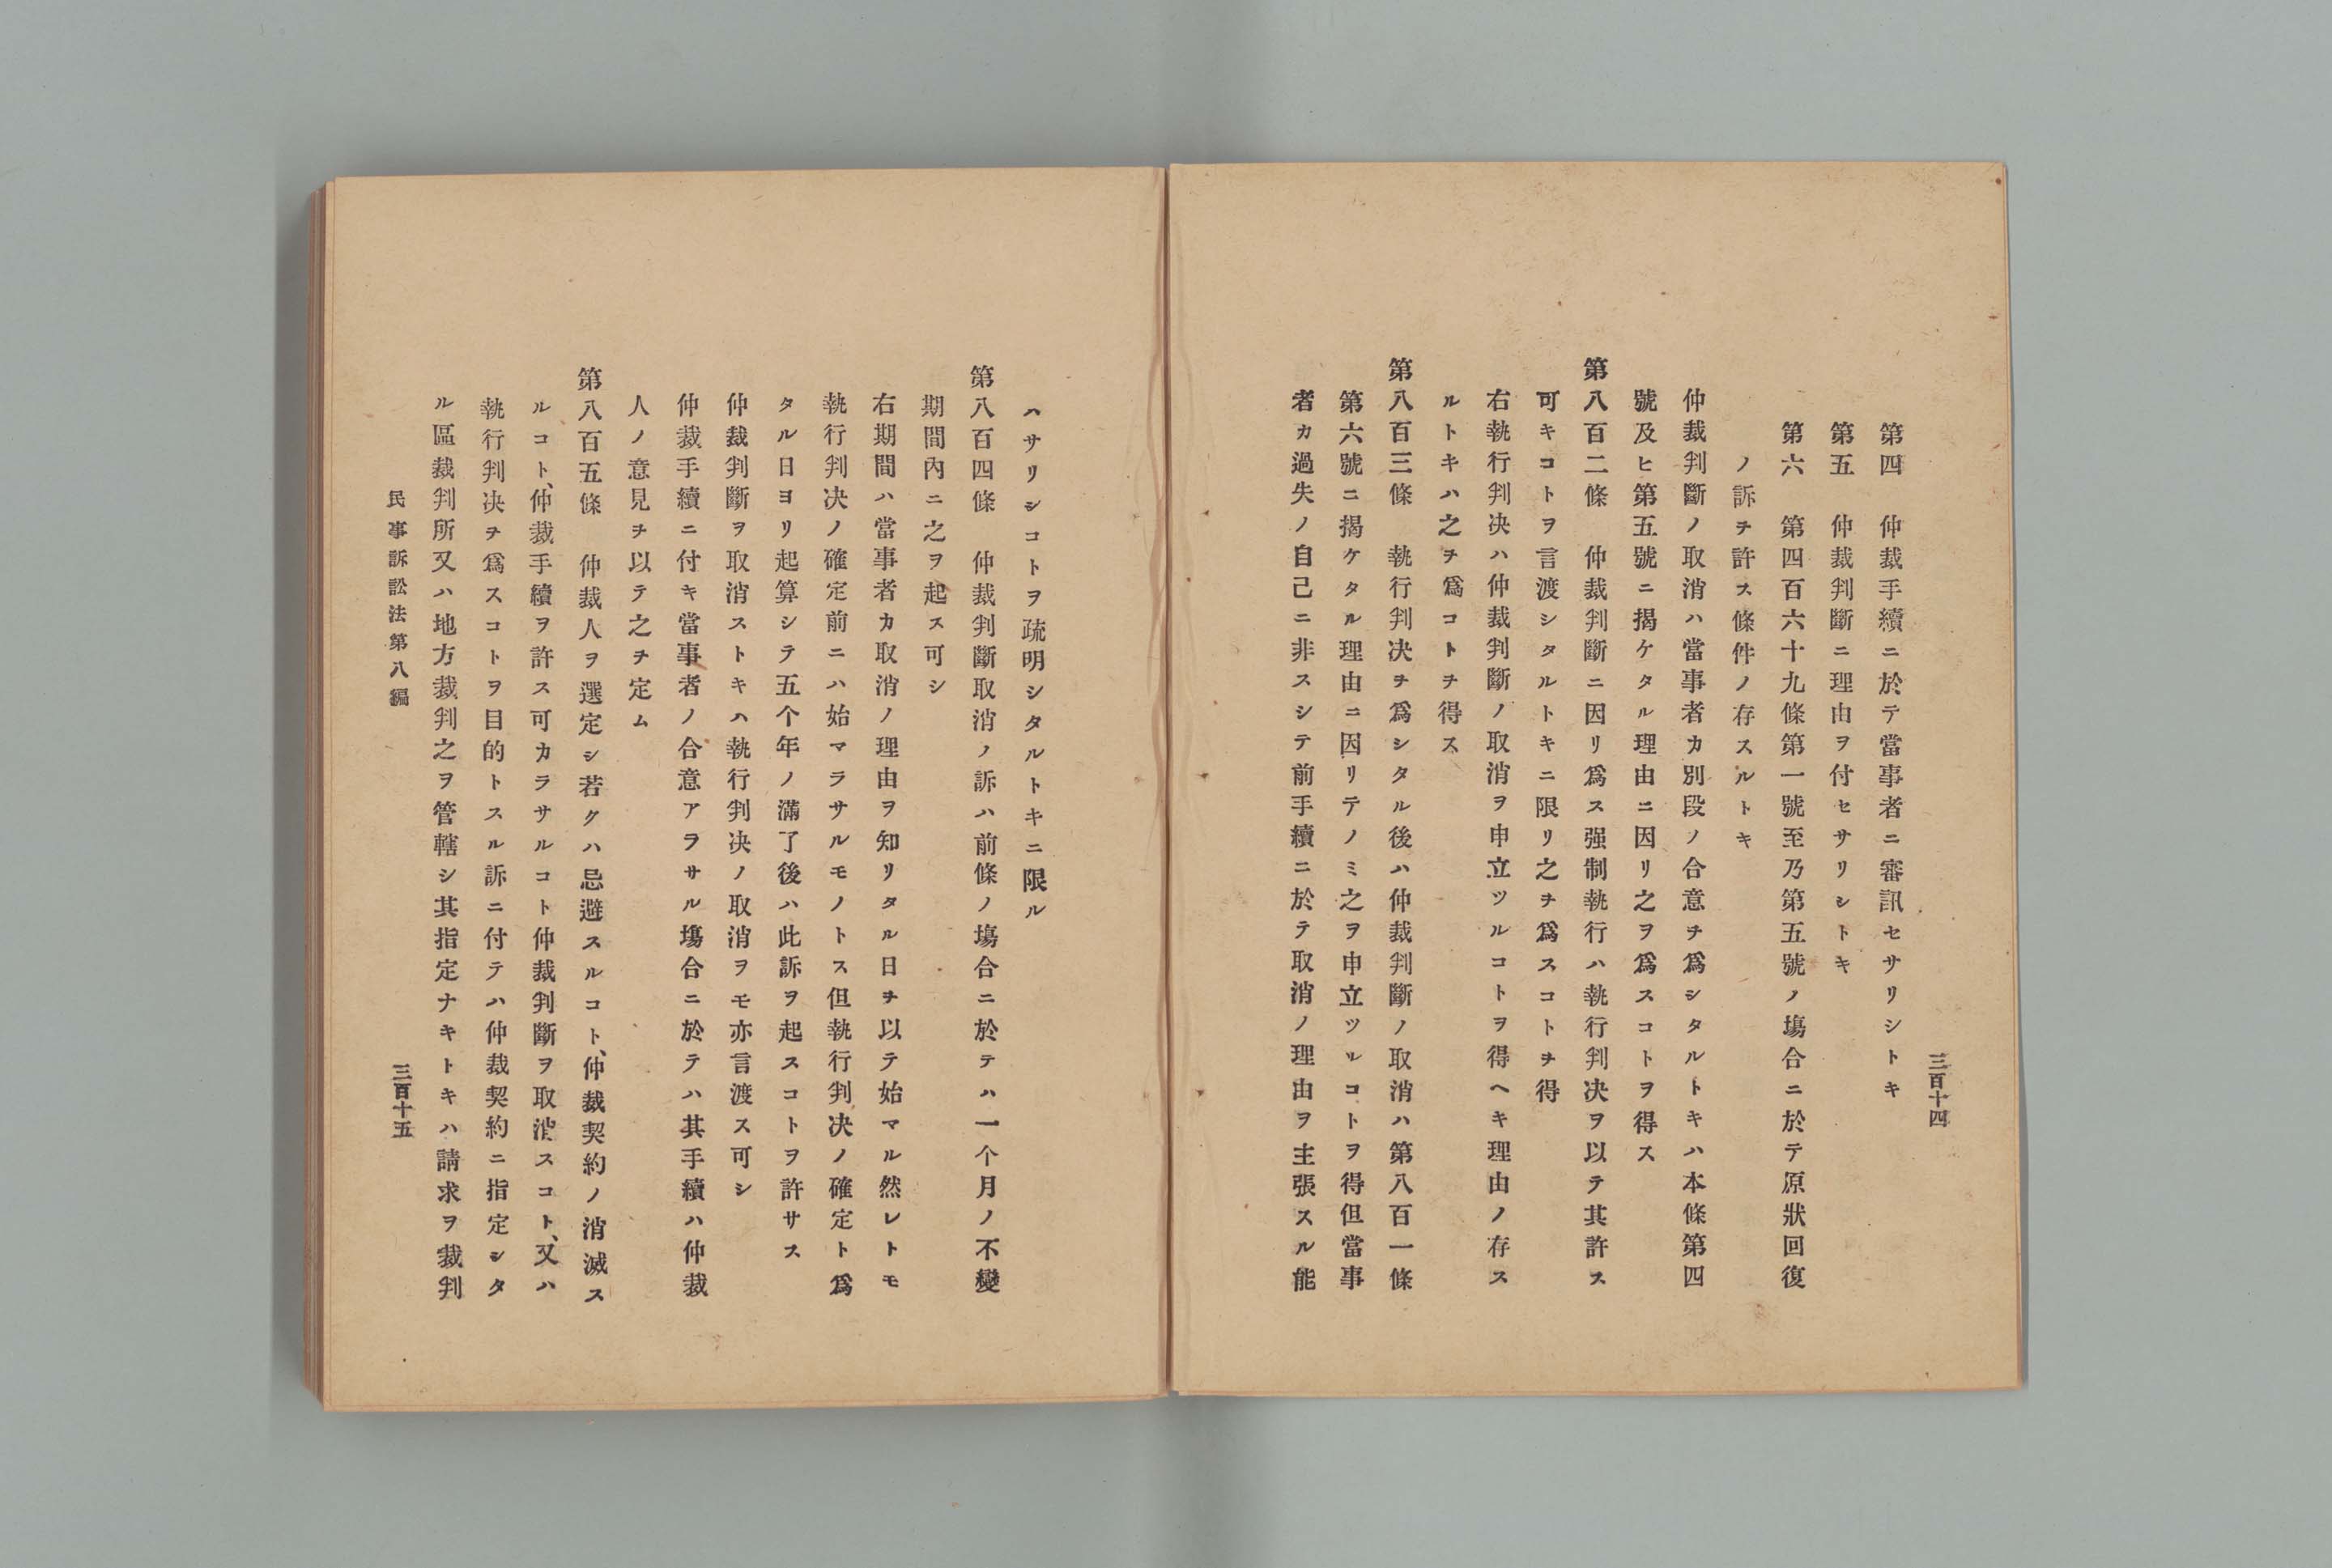 三百十四
第四　仲裁手續ニ於テ當事者ニ審訊セサリシトキ
第五　仲裁判斷ニ理由ヲ付セサリシトキ
第六　第四百六十九條第一號至乃第五號ノ塲合ニ於テ原狀回復
ノ訴チ許ス條件ノ存スルトキ
仲裁判斷ノ取消ハ當事者カ別段ノ合意チ爲シタルトキハ本條第四
號及ヒ第五號ニ揭ケタル理由ニ因リ之ヲ爲スコトヲ得ス
第八百二條　仲裁判斷ニ因リ爲ス强制執行ハ執行判決ヲ以テ其許ス
可キコトヲ言渡シタルトキニ限リ之ヲ爲スコトヲ得
右執行判決ハ仲裁判斷ノ取消ヲ申立ツルコトヲ得ヘキ理由ノ存ス
ルトキハ之ヲ爲コトチ得ス
第八百三條　執行判決ヲ爲シタル後ハ仲裁判斷ノ取消ハ第八百一條
第六號ニ揭ケタル理由ニ因リテノミ之ヲ申立ツルコトヲ得但當事
者カ過失ノ自己ニ非スシテ前手續ニ於テ取消ノ理由ヲ主張スル能
ハサリシコトヲ疏明シタルトキニ限ル
第八百四條　仲裁判斷取消ノ訴ハ前條ノ塲合ニ於テハ一个月ノ不變
期間內ニ之ヲ起ス可シ
右期間ハ當事者カ取消ノ理由ヲ知リタル日チ以テ始マル然レトモ
執行判決ノ確定前ニハ始マラサルモノトス但執行判決ノ確定ト爲
タル日ヨリ起算シテ五个年ノ滿了後ハ此訴ヲ起スコトヲ許サス
仲裁判斷ヲ取消ストキハ執行判決ノ取消ヲモ亦言渡ス可シ
仲裁手續ニ付キ當事者ノ合意アラサル塲合ニ於テハ其手續ハ仲裁
人ノ意見チ以テ之チ定ム
第八百五條　仲裁人ヲ選定シ若クハ忌避スルコト、仲裁契約ノ消滅ス
ルコト、仲裁手續ヲ許ス可カラサルコト仲裁判斷ヲ取消スコト、又ハ
執行判決チ爲スコトヲ目的トスル訴ニ付テハ仲裁契約ニ指定シタ
ル區裁判所又ハ地方裁判之ヲ管轄シ其指定ナキトキハ請求ヲ裁判
民事訴訟法第八編
三百十五